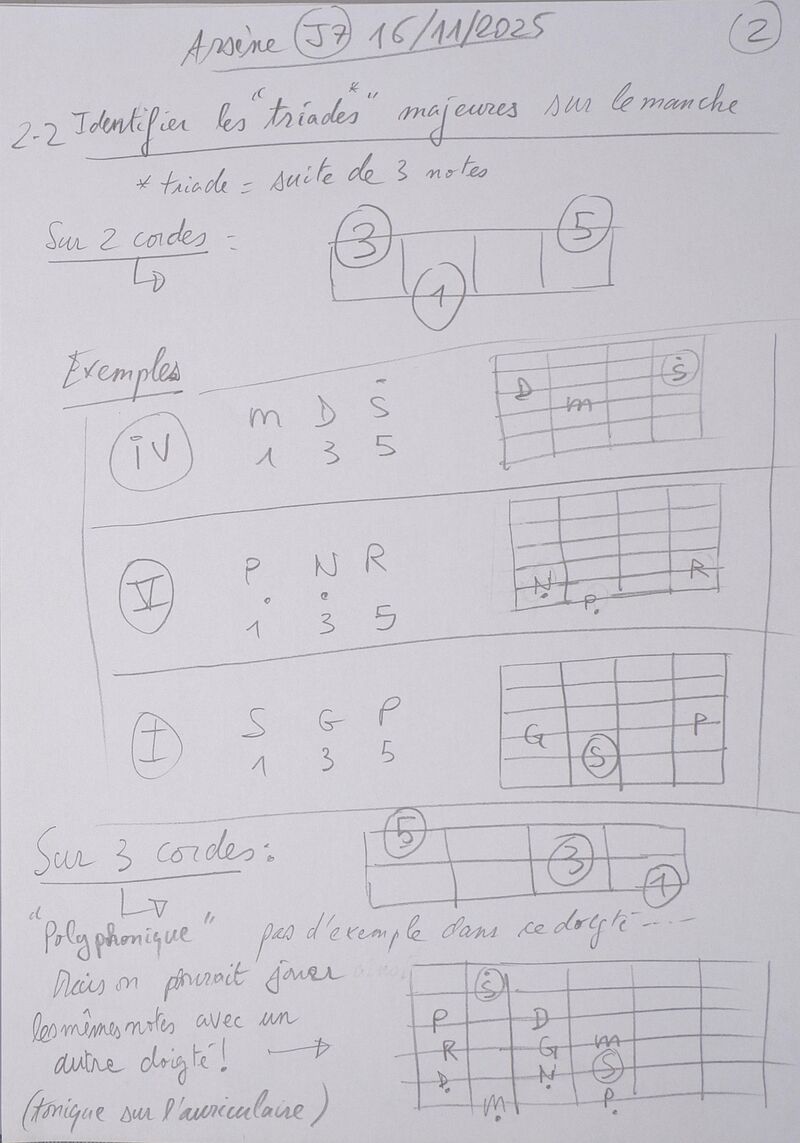 Arsène J7 16/11/2025
2
2-2 Identifier les "triades*" majeures sur le manche
* triade = suite de 3 notes
Sur 2 cordes =
3 5
1
Exemples
iV
m D Ṡ
1 3 5
D m Ṡ
V
Ṗ Ṇ R
1 3 5
Ṇ P. R
I
S G P
1 3 5
G S P
Sur 3 cordes :
5
3
1
"Polyphonique" pas d'exemple dans ce doigté ....
Mais on pourrait jouer
les mêmes notes avec un
autre doigté !
(tonique sur l'auriculaire)
Ṡ
P D
R G m
Ḍ Ṇ S
ṃ P.